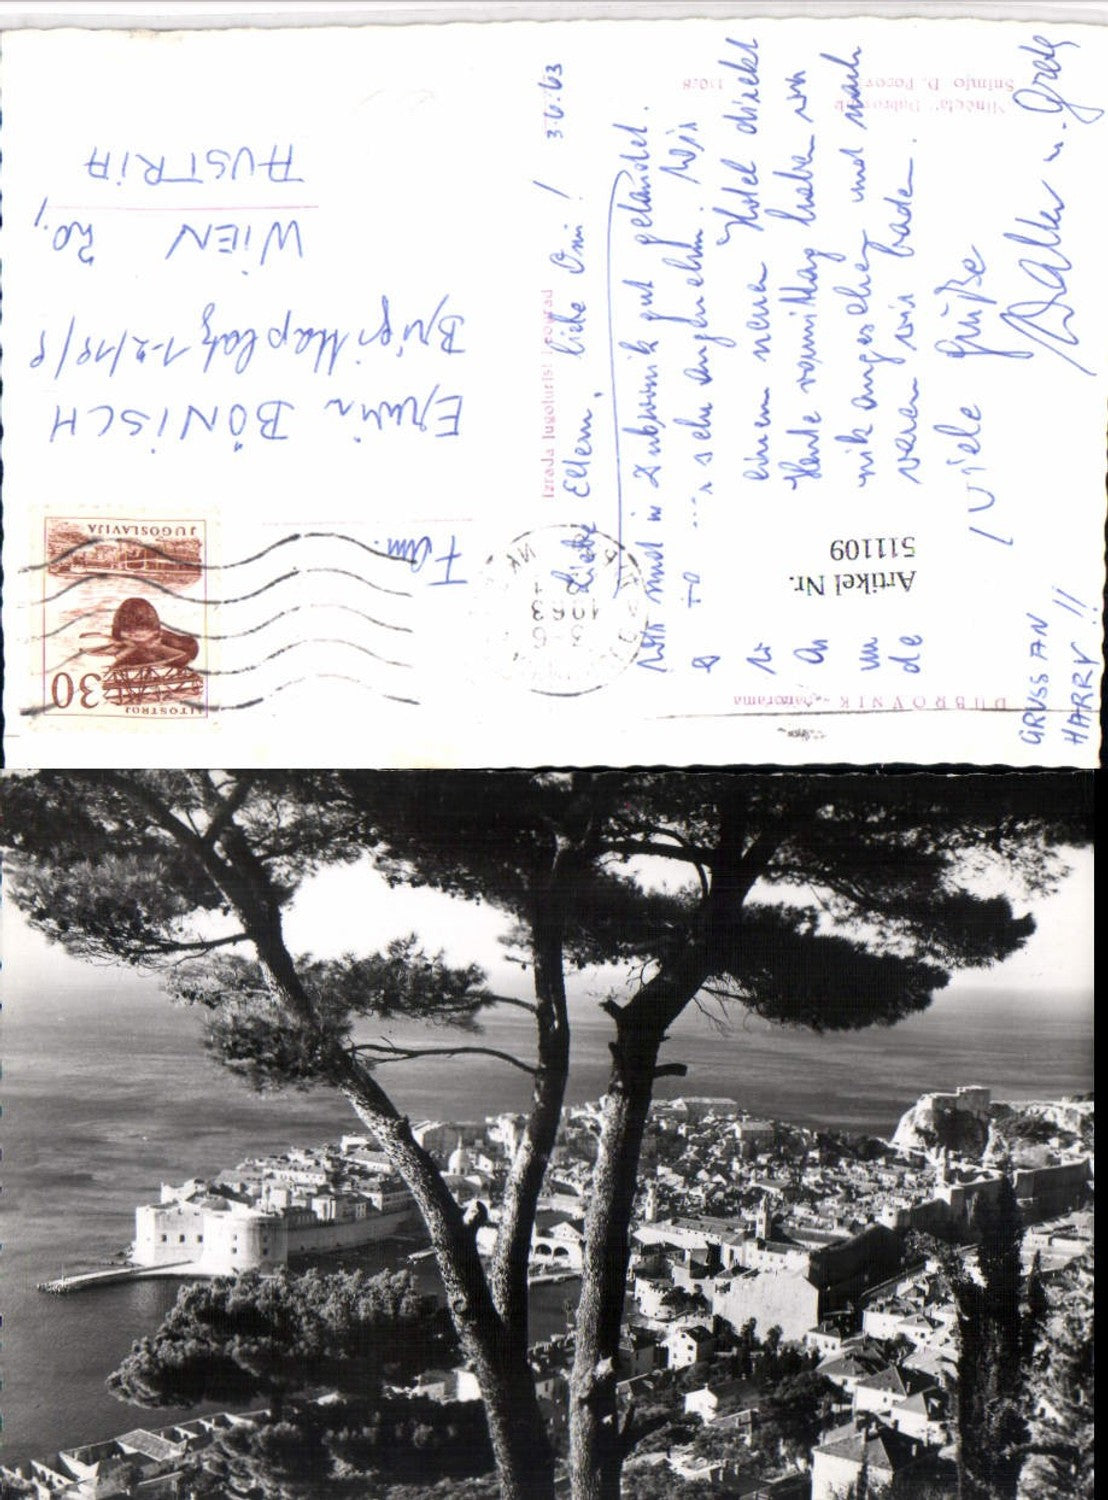 DUBROVNIK - panorama
Snimio D. Popov
11028
Izrada Jugoturist Beograd
3.6.63
Liebe Eltern, liebe Omi!
Wir sind in Dubrovnik gut gelandet.
sehr angenehm. Wir
einem neuen Hotel direkt
Heute vormittag haben wir
nik angesehen und nach
waren wir baden.
Viele Grüße
Walter u. Grete
GRUSS AN
HARRY!!
Artikel Nr.
511109
LITOSTROJ
30
JUGOSLAVIJA
3-6
1963
Fam.
Erwin BÖNISCH
Brigittaplatz 1-2/18/8
WIEN 20,
AUSTRIA